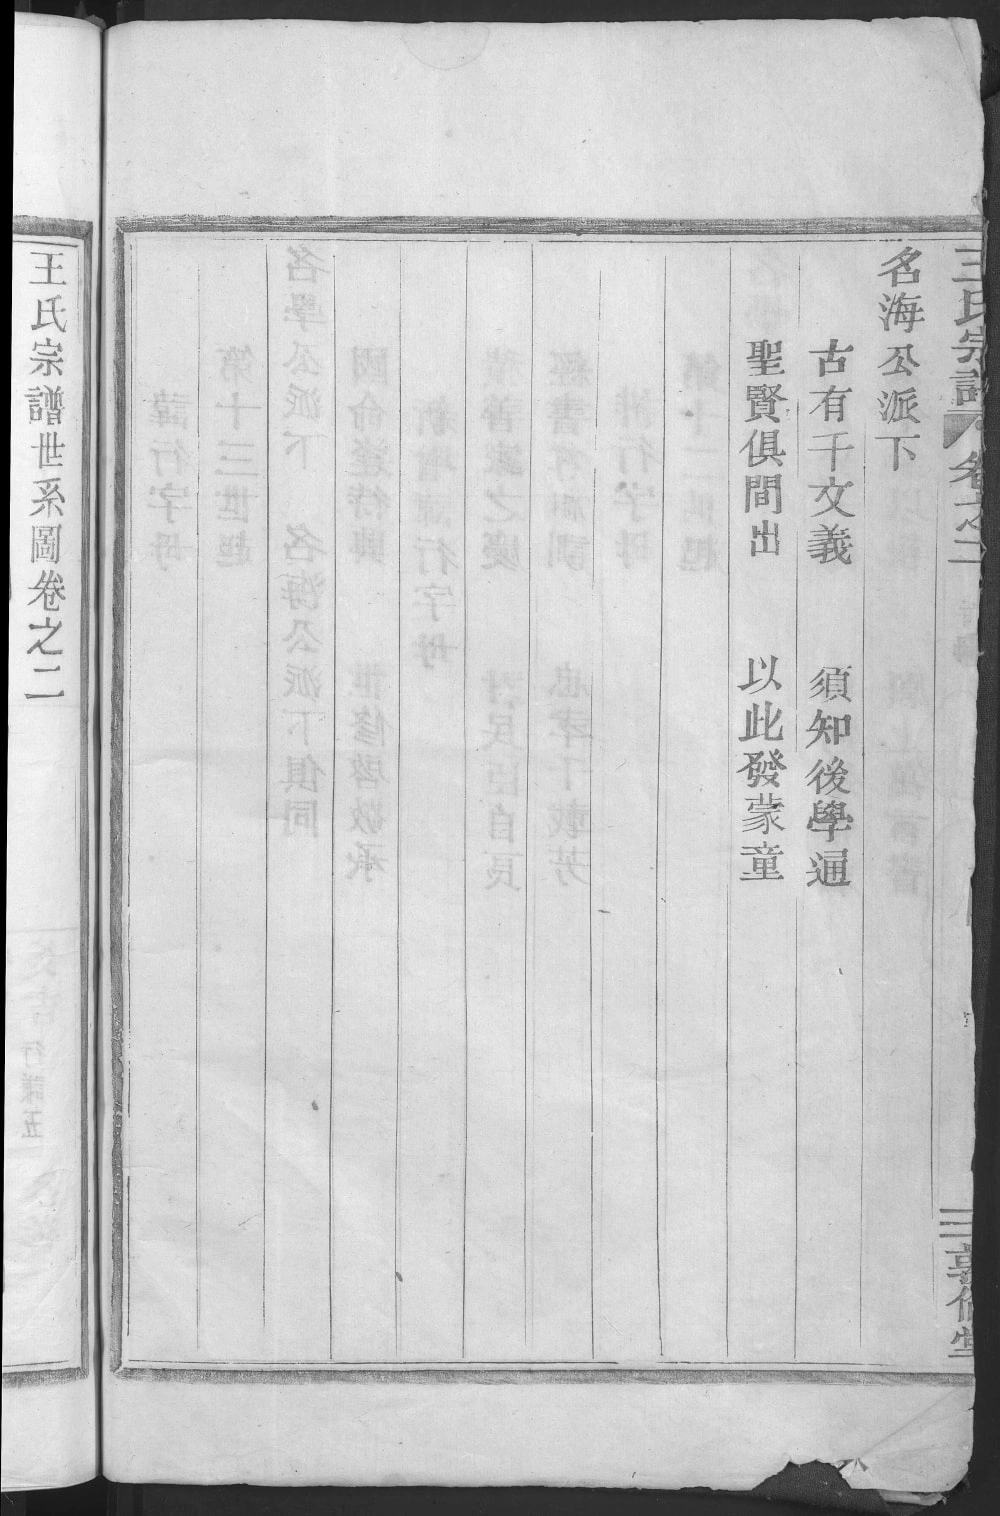 王氏宗譜 卷之二
三 敦倫堂
名海公派下
古有千文義 須知後學通
聖賢俱間出 以此發蒙童
王氏宗譜世系圖卷之二